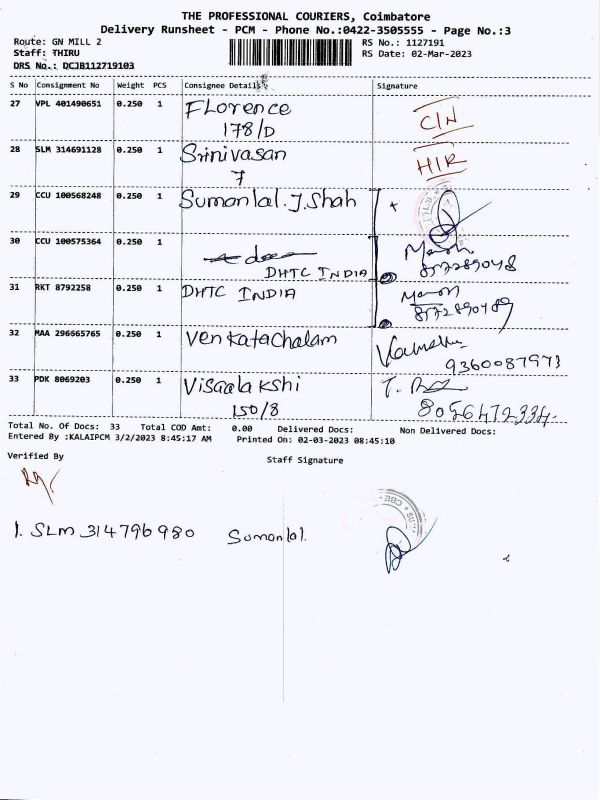 THE PROFESSIONAL COURIERS, Coimbatore
Delivery Runsheet - PCM - Phone No.:0422-3505555 - Page No.:3
Route: GN MILL 2 RS No.: 1127191
Staff: THIRU RS Date: 02-Mar-2023
DRS No.: DCJB112719103
S No Consignment No Weight PCS Consignee Details Signature
27 VPL 401490651 0.250 1 Florence
178/D CIN
28 SLM 314691128 0.250 1 Srinivasan
7 HIR
29 CCU 100568248 0.250 1 Sumanlal.J.Shah
30 CCU 100575364 0.250 1
DHTC INDIA
31 RKT 8792258 0.250 1 DHTC INDIA
32 MAA 296665765 0.250 1 Venkatachalam
9360087973
33 PDK 8069203 0.250 1 Visaalakshi
150/8 8056472334.
Total No. Of Docs: 33 Total COD Amt: 0.00 Delivered Docs: Non Delivered Docs:
Entered By :KALAIPCM 3/2/2023 8:45:17 AM Printed On: 02-03-2023 08:45:10
Verified By Staff Signature
1. SLM 314796980 Sumanlal.